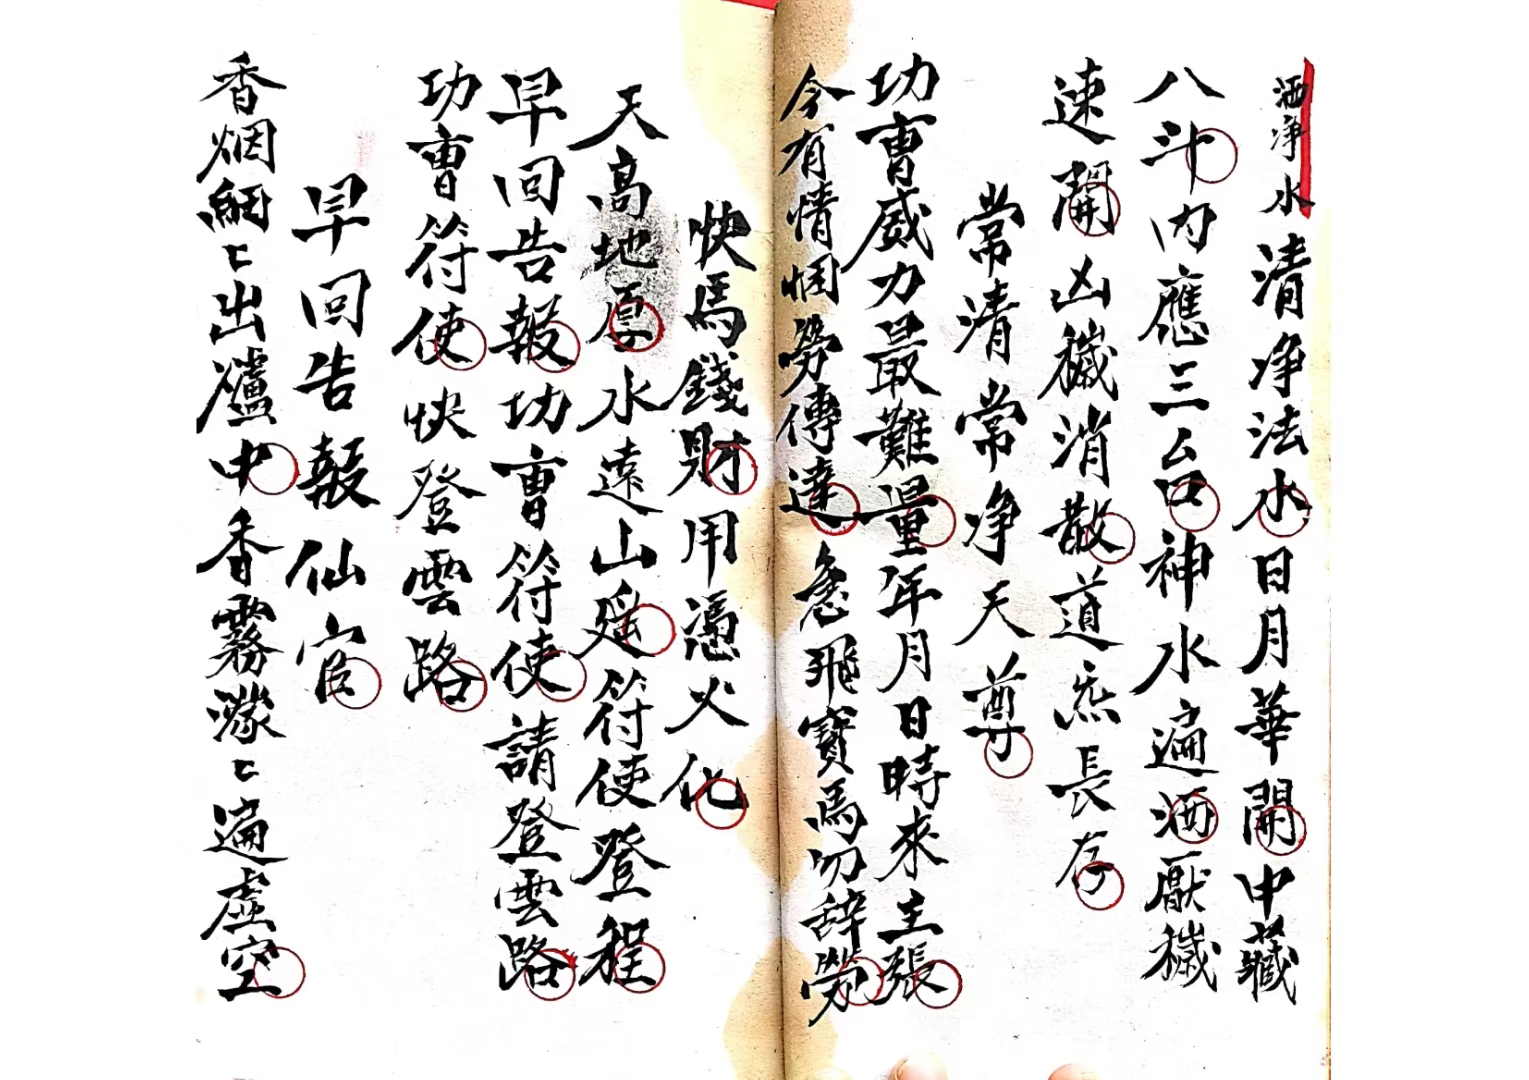 洒净水 清净法水日月華開中藏
八斗内應三台神水遍洒厭穢
速開凶穢消散道炁長存
常清常净天尊
功曹威力最難量年月日時來主張
今有情悃勞傳達急飛寳馬勿辞勞
快馬錢財用憑火化
天高地厚水遠山遥符使登程
早回告報功曹符使請登雲路
功曹符使快登雲路
早回告報仙官
香烟綱〻出爐中香霧濛〻遍虚空